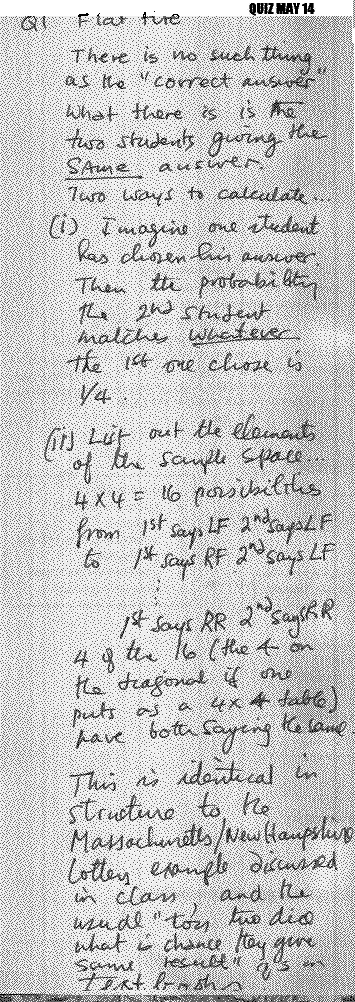 QUIZ MAY 14
Q1 Flat tire
There is no such thing
as the "correct answer"
What there is is the
two students giving the
SAME answer.
Two ways to calculate...
(i) Imagine one student
has chosen his answer.
Then the probability
the 2nd student
matches whatever
the 1st one chose is
1/4.
(ii) List out the elements
of the sample space...
4 x 4 = 16 possibilities
from 1st says LF 2nd says LF
to 1st says RF 2nd says LF
1st says RR 2nd says RR
4 of the 16 (the 4 on
the diagonal if one
puts as a 4x4 table)
have both saying the same.
This is identical in
structure to the
Massachusetts/New Hampshire
lottery example discussed
in class, and the
usual "toss two dice
what is chance they give
same result" q's in